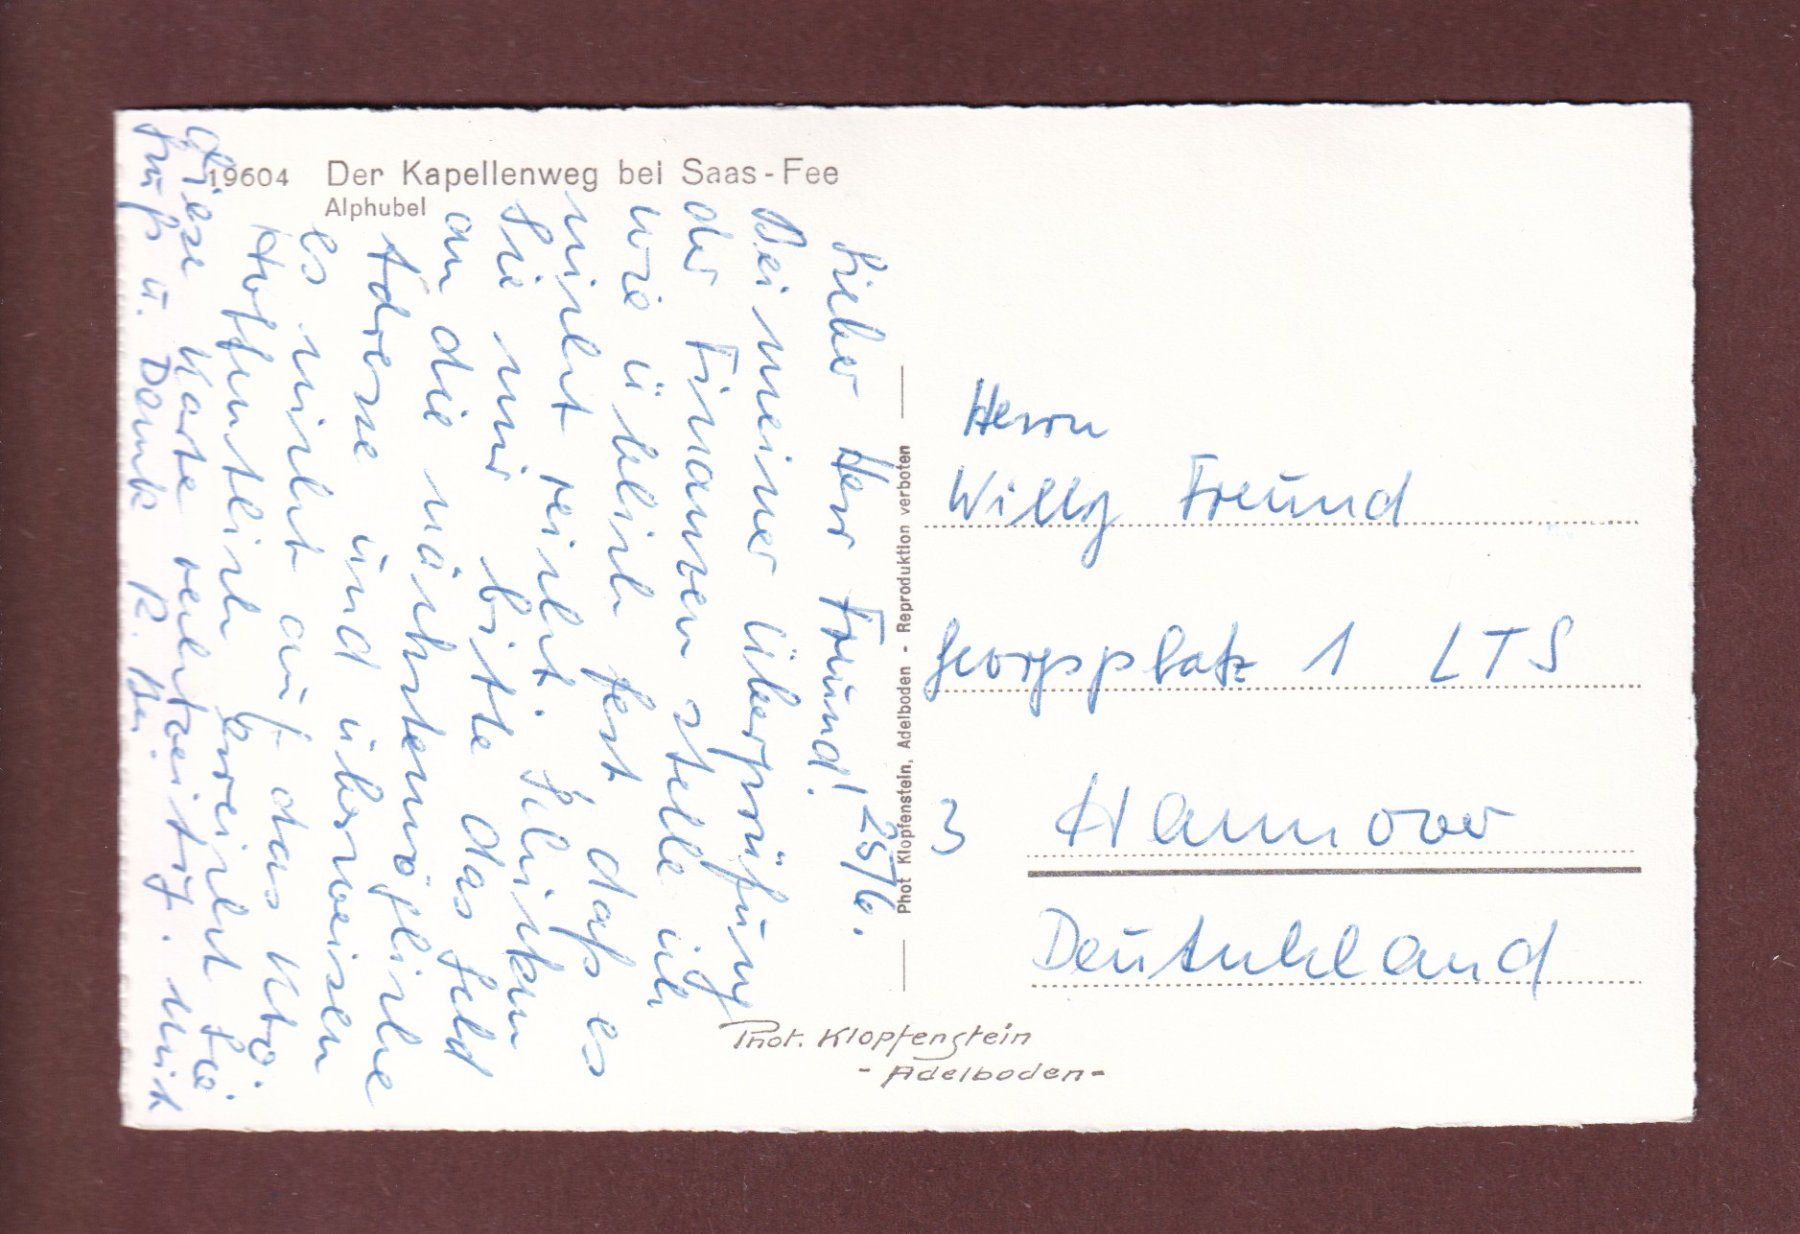 19604 Der Kapellenweg bei Saas-Fee
Alphubel
Lieber Herr Freund! 25/6.
Bei meiner Überprüfung
der Finanzen stelle ich
wie üblich fest daß es
nicht reicht. Schicken
Sie mir bitte das Geld
an die nächstmögliche
Adresse und überweisen
es nicht auf das Kto.
Hoffentlich erreicht Sie
diese Karte rechtzeitig. Mit
Gruß u. Dank R.
Phot Klopfenstein, Adelboden - Reproduktion verboten
Herrn
Willy Freund
Georgsplatz 1 LTS
3 Hannover
Deutschland
Phot. Klopfenstein
- Adelboden -